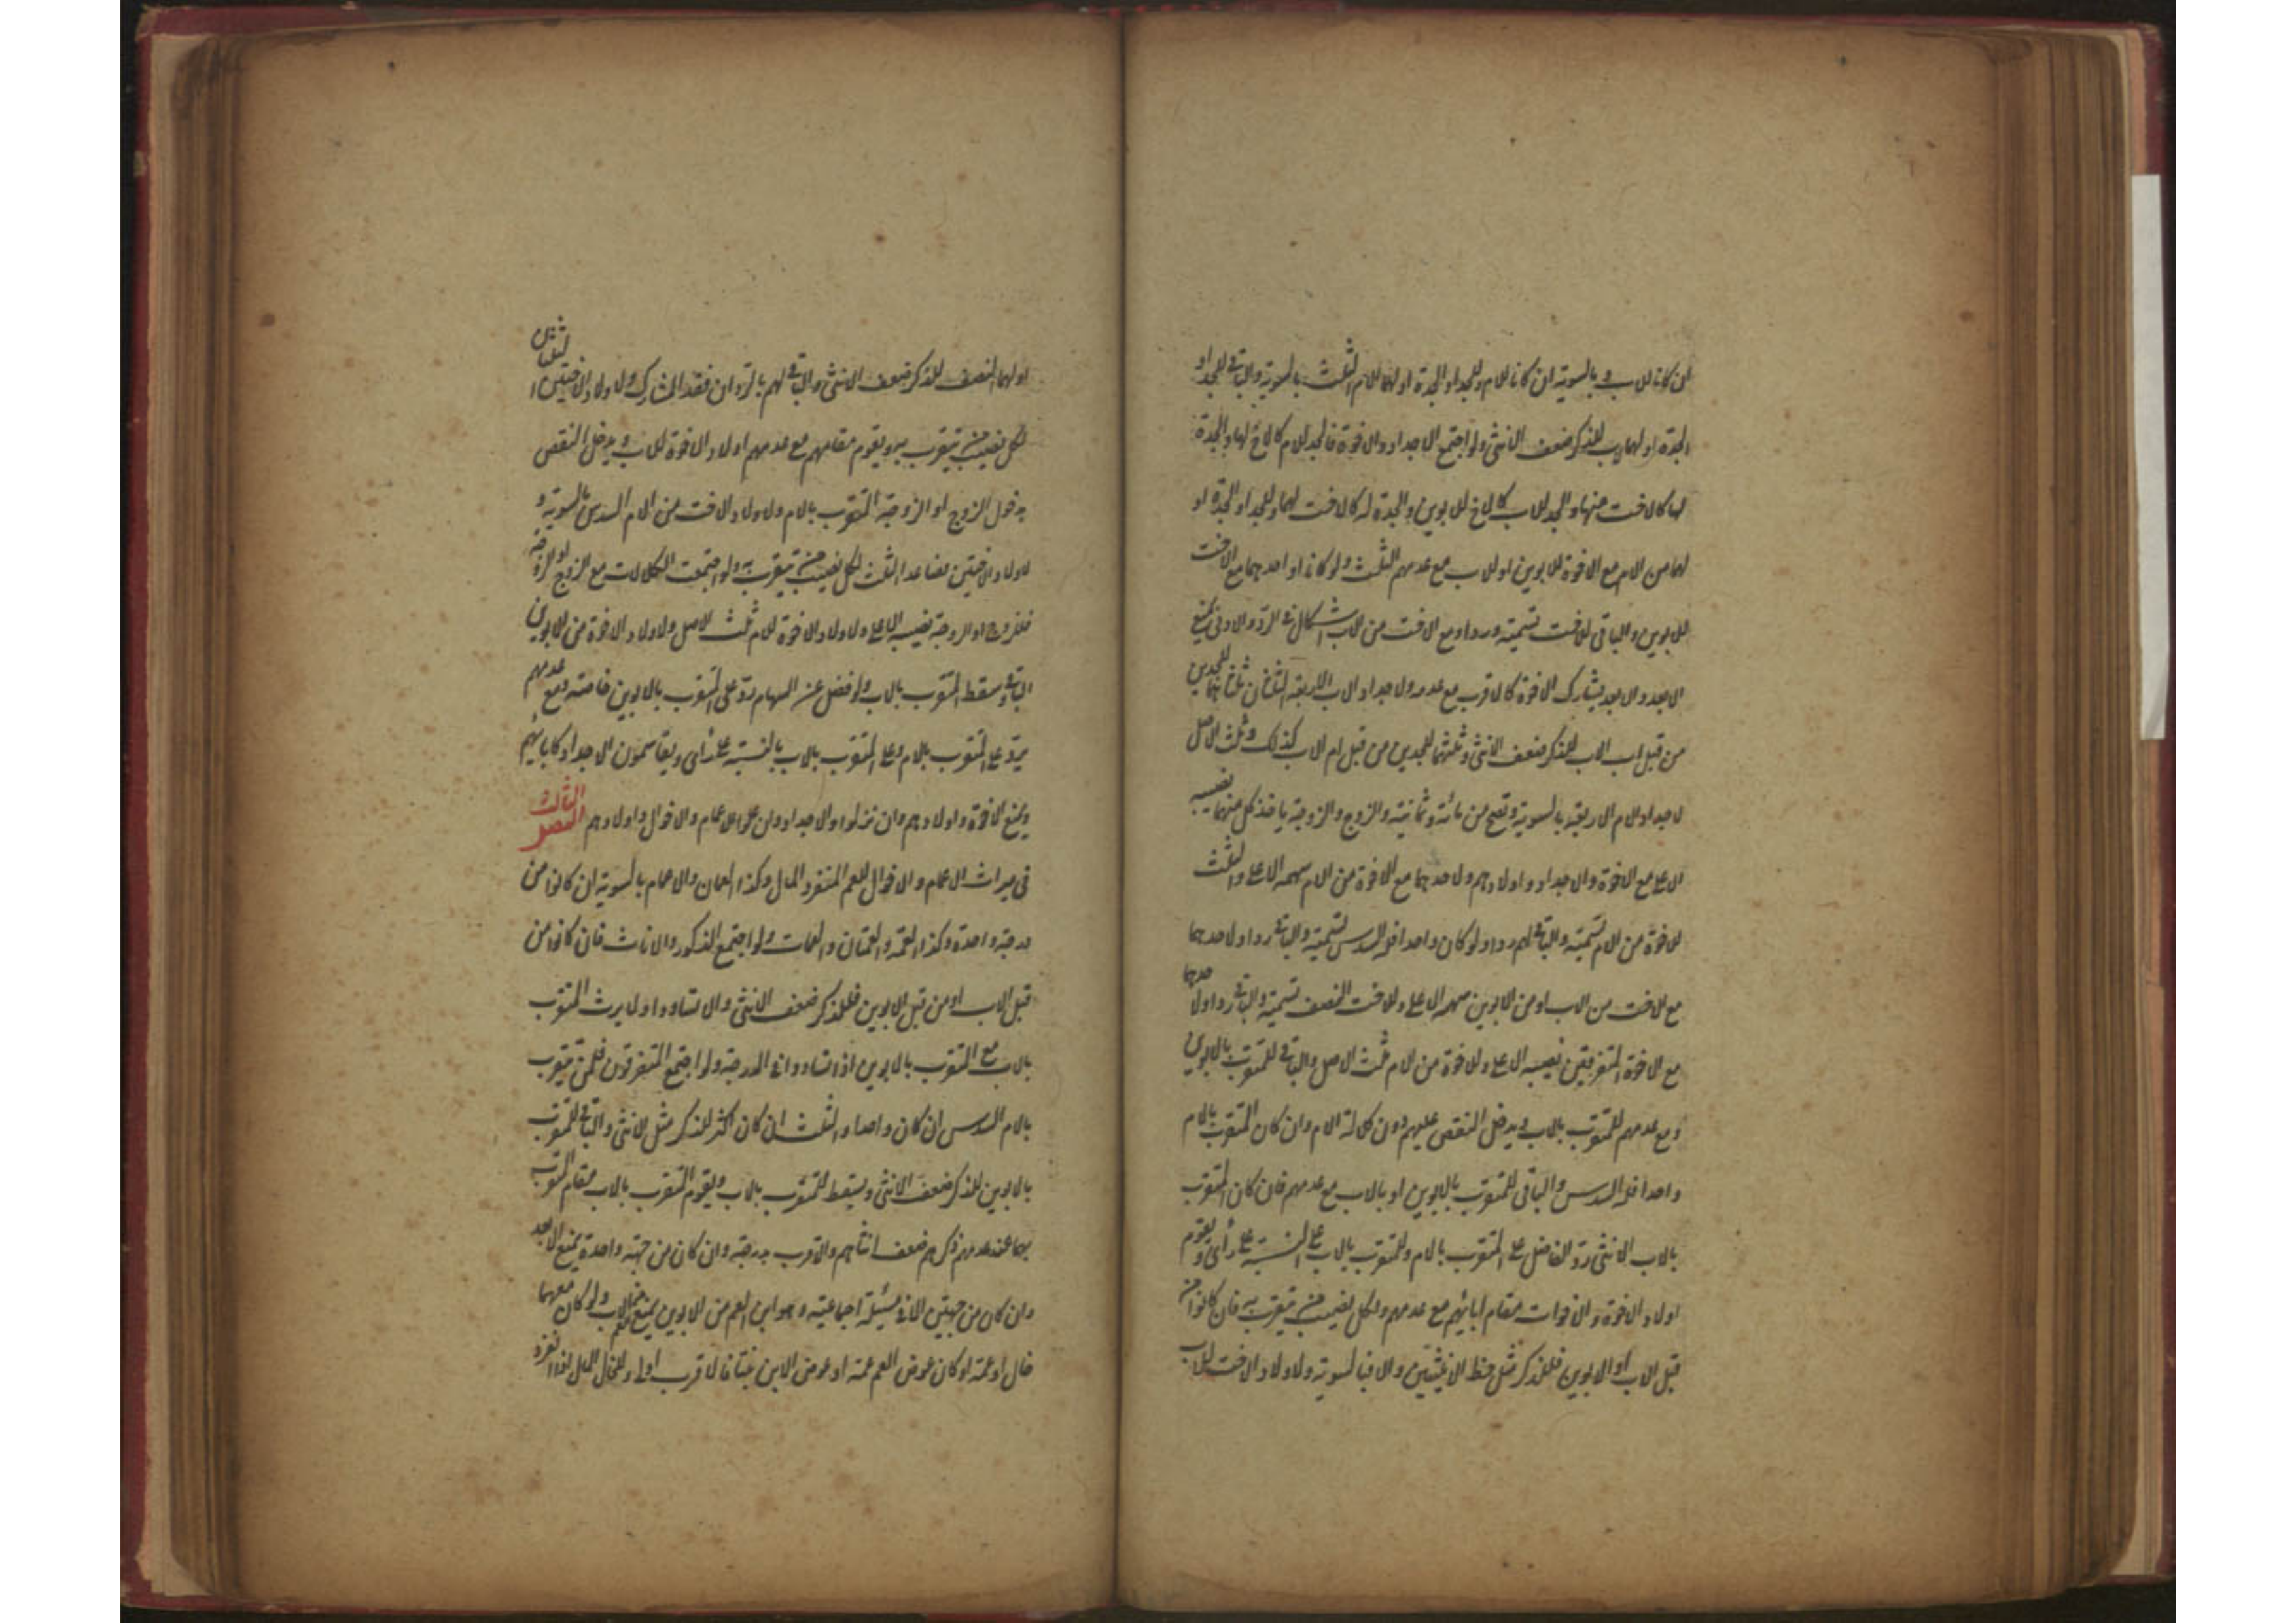 ان كانا للاب و بالسوية ان كانا للام وللجد او الجدة او لهما للام الثلث بالسوية والباقي للجد او
الجدة او لهما للاب للذكر ضعف الانثى ولو اجتمع الاجداد والاخوة فالجد للام كالاخ لها والجدة
لها كالاخت منها والجد للاب كالاخ للابوين والجدة له كالاخت لهما وللجد او الجدة او
لهما من الام مع الاخوة للابوين او للاب مع عدمهم الثلث ولو كانا او احدهما مع الاخت
للابوين والباقي للاخت تسمية وردا ومع الاخت من الاب اشكال في الرد والادنى يمنع
الابعد والابعد يشارك الاخوة كالاقرب مع عدمه ولاجداد الاب الاربعة الثلثان ثلثاهما للجدين
من قبل اب الاب للذكر ضعف الانثى وثلثهما للجدين من قبل ام الاب كذلك وثلث الاصل
لاجداد الام الاربعة بالسوية وتصح من مائة وثمانية والزوج والزوجة ياخذ كل منهما نصيبه
الاعلى مع الاخوة والاجداد واولادهم ولاحدهما مع الاخوة من الام سهمه الاعلى والثلث
للاخوة من الام تسمية والباقي لهم ردا ولو كان واحدا فله السدس تسمية والباقي ردا ولاحدهما
مع الاخت من الاب او من الابوين سهمه الاعلى وللاخت النصف تسمية والباقي ردا ولاحدهما
مع الاخوة المتفرقين نصيبه الاعلى وللاخوة من الام ثلث الاصل والباقي للمتقرب بالابوين
ومع عدمهم للمتقرب بالاب ويدخل النقص عليهم دون كلالة الام وان كان المتقرب بالام
واحدا فله السدس والباقي للمتقرب بالابوين او بالاب مع عدمهم فان كان المتقرب
بالاب الانثى رد الفاضل على المتقرب بالام وللمتقرب بالاب على النسبة على رأى ويقوم
اولاد الاخوة والاخوات مقام ابائهم مع عدمهم ولكل نصيب من يتقرب به فان كانوا من
قبل الاب او الابوين فللذكر مثل حظ الانثيين والا فبالسوية ولاولاد الاخت للاب
او لهما النصف للذكر ضعف الانثى والباقي لهم بالرد ان فقد المشارك ولاولاد الاختين الثلثان
لكل نصيب من يتقرب به ويقوم مقامهم مع عدمهم اولاد الاخوة للاب ويدخل النقص
بدخول الزوج او الزوجة المتقرب بالام ولاولاد الاخت من الام السدس بالسوية و
لاولاد الاختين فصاعدا الثلث لكل نصيب من يتقرب به ولو اجتمعت الكلالات مع الزوج او الزوجة
فللزوج او الزوجة نصيبه الاعلى ولاولاد الاخوة للام ثلث الاصل ولاولاد الاخوة من الابوين
الباقي وسقط المتقرب بالاب ولو فضل عن السهام رد على المتقرب بالابوين خاصة ومع عدمهم
يرد على المتقرب بالام وعلى المتقرب بالاب بالنسبة على رأى ويقاسمون الاجداد كابائهم
ويمنع الاخوة واولادهم وان نزلوا والاجداد وان علوا الاعمام والاخوال واولادهم الفصل الثالث
في ميراث الاعمام والاخوال للعم المنفرد المال وكذا العمان والاعمام بالسوية ان كانوا من
درجة واحدة وكذا العمة والعمتان والعمات ولو اجتمع الذكور والاناث فان كانوا من
قبل الاب او من قبل الابوين فللذكر ضعف الانثى والا تساووا ولا يرث المتقرب
بالاب مع المتقرب بالابوين اذا تساووا في الدرجة ولو اجتمع المتفرقون فلمن يتقرب
بالام السدس ان كان واحدا والثلث ان كان اكثر للذكر مثل الانثى والباقي للمتقرب
بالابوين للذكر ضعف الانثى ويسقط المتقرب بالاب ويقوم المتقرب بالاب مقام المتقرب
بهما عند عدمهم ذكرهم ضعف انثاهم والاقرب بدرجة وان كان من جهة واحدة يمنع الابعد
وان كان من جهتين الا في مسئلة اجماعية وهو ابن العم من الابوين يمنع العم من الاب ولو كان معهما
خال او عمة او كان عوض العم عمة او عوض الابن بنتا فالاقرب اولى وللخال المال اذا انفرد